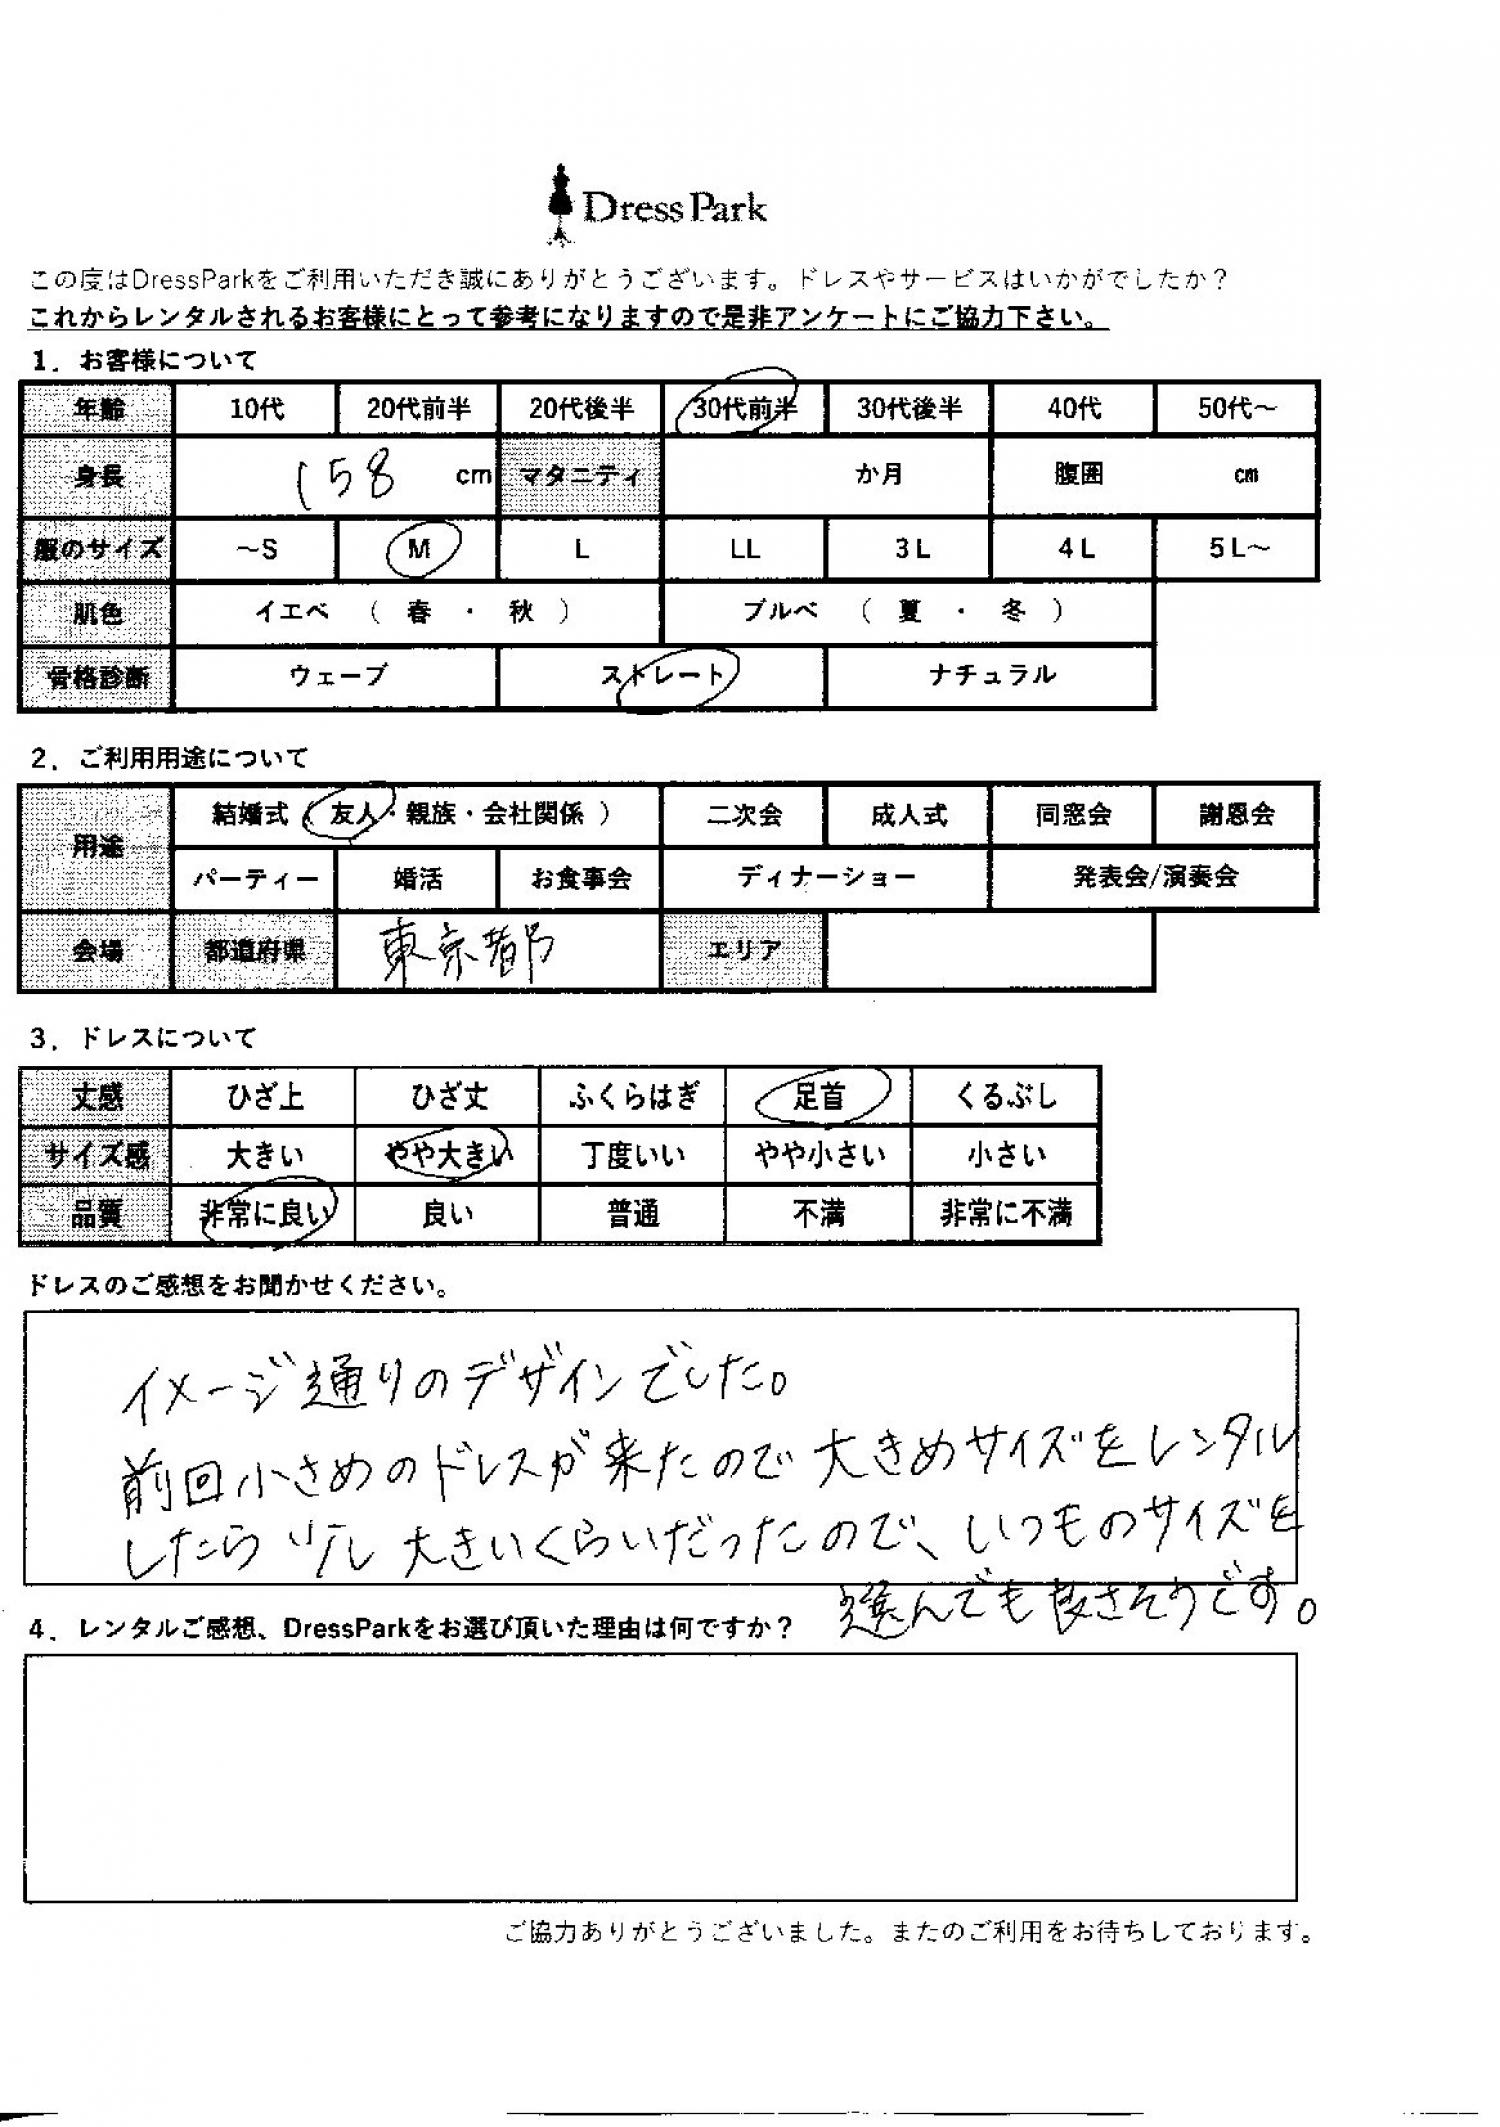 Dress Park
この度はDressParkをご利用いただき誠にありがとうございます。ドレスやサービスはいかがでしたか？
これからレンタルされるお客様にとって参考になりますので是非アンケートにご協力下さい。
1．お客様について
年齢 10代 20代前半 20代後半 30代前半 30代後半 40代 50代～
身長 158 cm マタニティ か月 腹囲 cm
服のサイズ ～S M L LL 3L 4L 5L～
肌色 イエベ （ 春 ・ 秋 ） ブルベ （ 夏 ・ 冬 ）
骨格診断 ウェーブ ストレート ナチュラル
2．ご利用用途について
用途 結婚式（友人・親族・会社関係 ） 二次会 成人式 同窓会 謝恩会
パーティー 婚活 お食事会 ディナーショー 発表会/演奏会
会場 都道府県 東京都 エリア
3．ドレスについて
丈感 ひざ上 ひざ丈 ふくらはぎ 足首 くるぶし
サイズ感 大きい やや大きい 丁度いい やや小さい 小さい
品質 非常に良い 良い 普通 不満 非常に不満
ドレスのご感想をお聞かせください。
イメージ通りのデザインでした。
前回小さめのドレスが来たので大きめサイズをレンタル
したら少し大きいくらいだったので、いつものサイズを
選んでも良さそうです。
4．レンタルご感想、DressParkをお選び頂いた理由は何ですか？
ご協力ありがとうございました。またのご利用をお待ちしております。